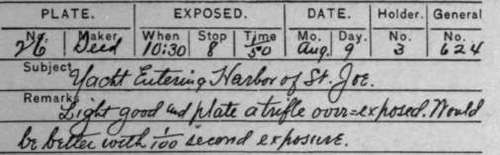 PLATE. EXPOSED. DATE. Holder. General
No. Maker When Stop Time Mo. Day. No. No.
26 Seed 10:30 8 1/50 Aug. 9 3 624
Subject Yacht Entering Harbor of St. Joe.
Remarks Light good and plate a trifle over=exposed. Would
be better with 1/100 second exposure.